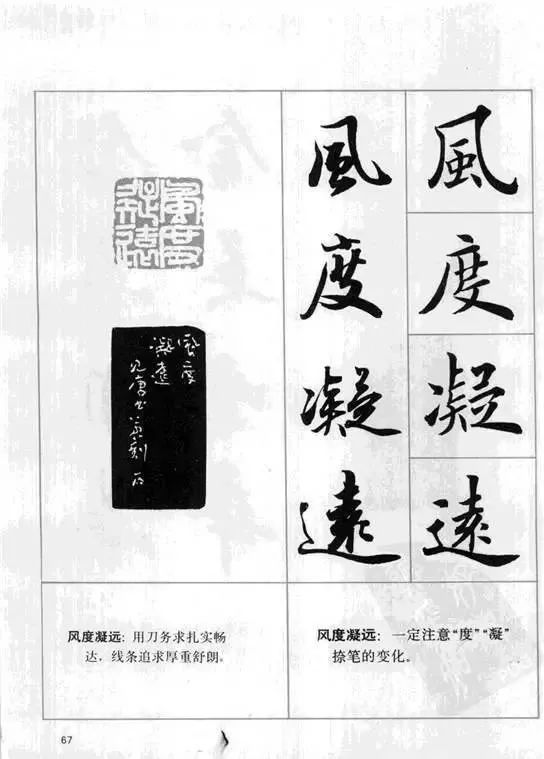 風度凝遠
風度凝遠
風度凝遠
風度
凝遠
风度凝远：用刀务求扎实畅
达，线条追求厚重舒朗。
风度凝远：一定注意“度”“凝”
捺笔的变化。
67